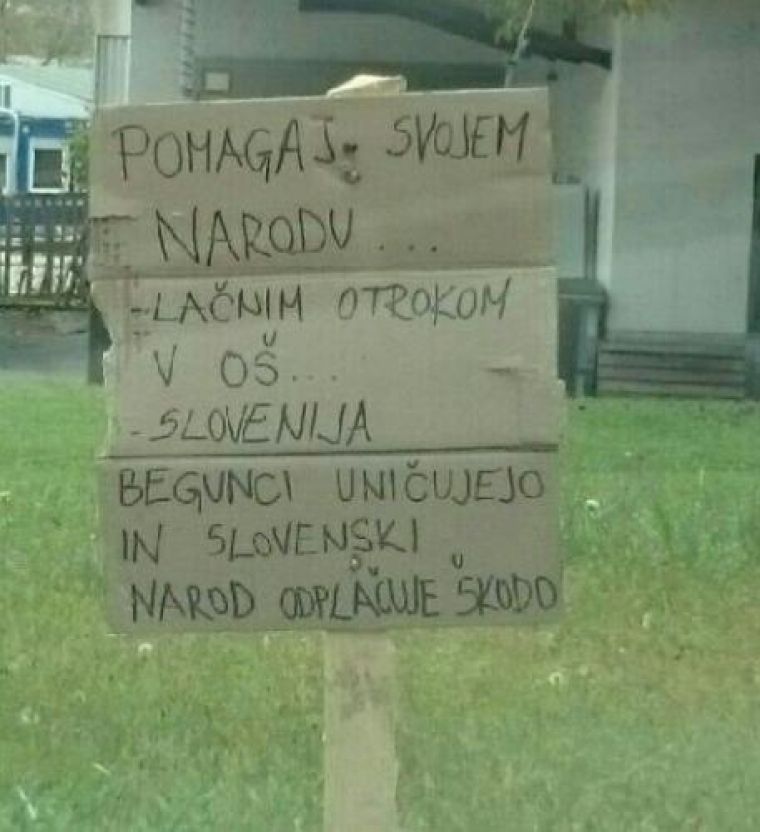 POMAGAJ SVOJEM
NARODU...
-LAČNIM OTROKOM
V OŠ...
-SLOVENIJA
BEGUNCI UNIČUJEJO
IN SLOVENSKI
NAROD ODPLAČUJE ŠKODO